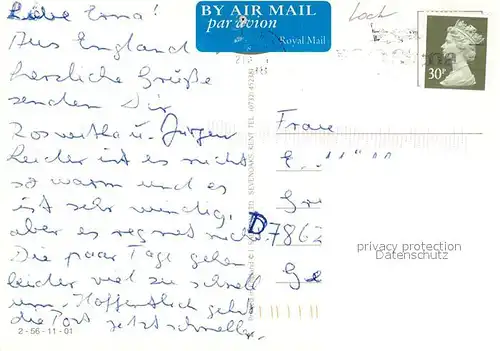 Liebe Erna!
Aus England
herzliche Grüße
senden Dir
Roswitha u. Jürgen
Leider ist es nicht
so warm und es
ist sehr windig,
aber es regnet nicht.
Die paar Tage gehen
leider viel zu schnell
um. Hoffentlich geht
die Post jetzt schneller.
2-56-11-01
BY AIR MAIL
par avion
Royal Mail
30P
SEVENOAKS, KENT TEL
Frau
E.
Gr
D 7862
privacy protection
Datenschutz
Ge